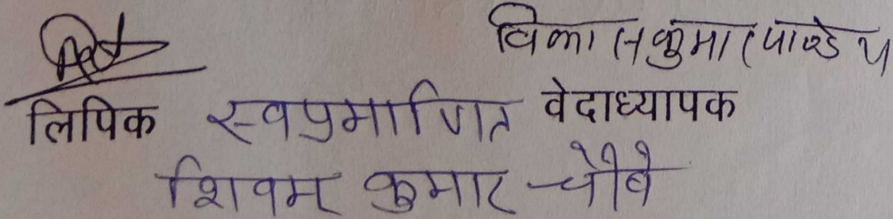 विकास कुमार पाण्डेय
लिपिक स्वप्रमाणित वेदाध्यापक
शिवम कुमार चौबे